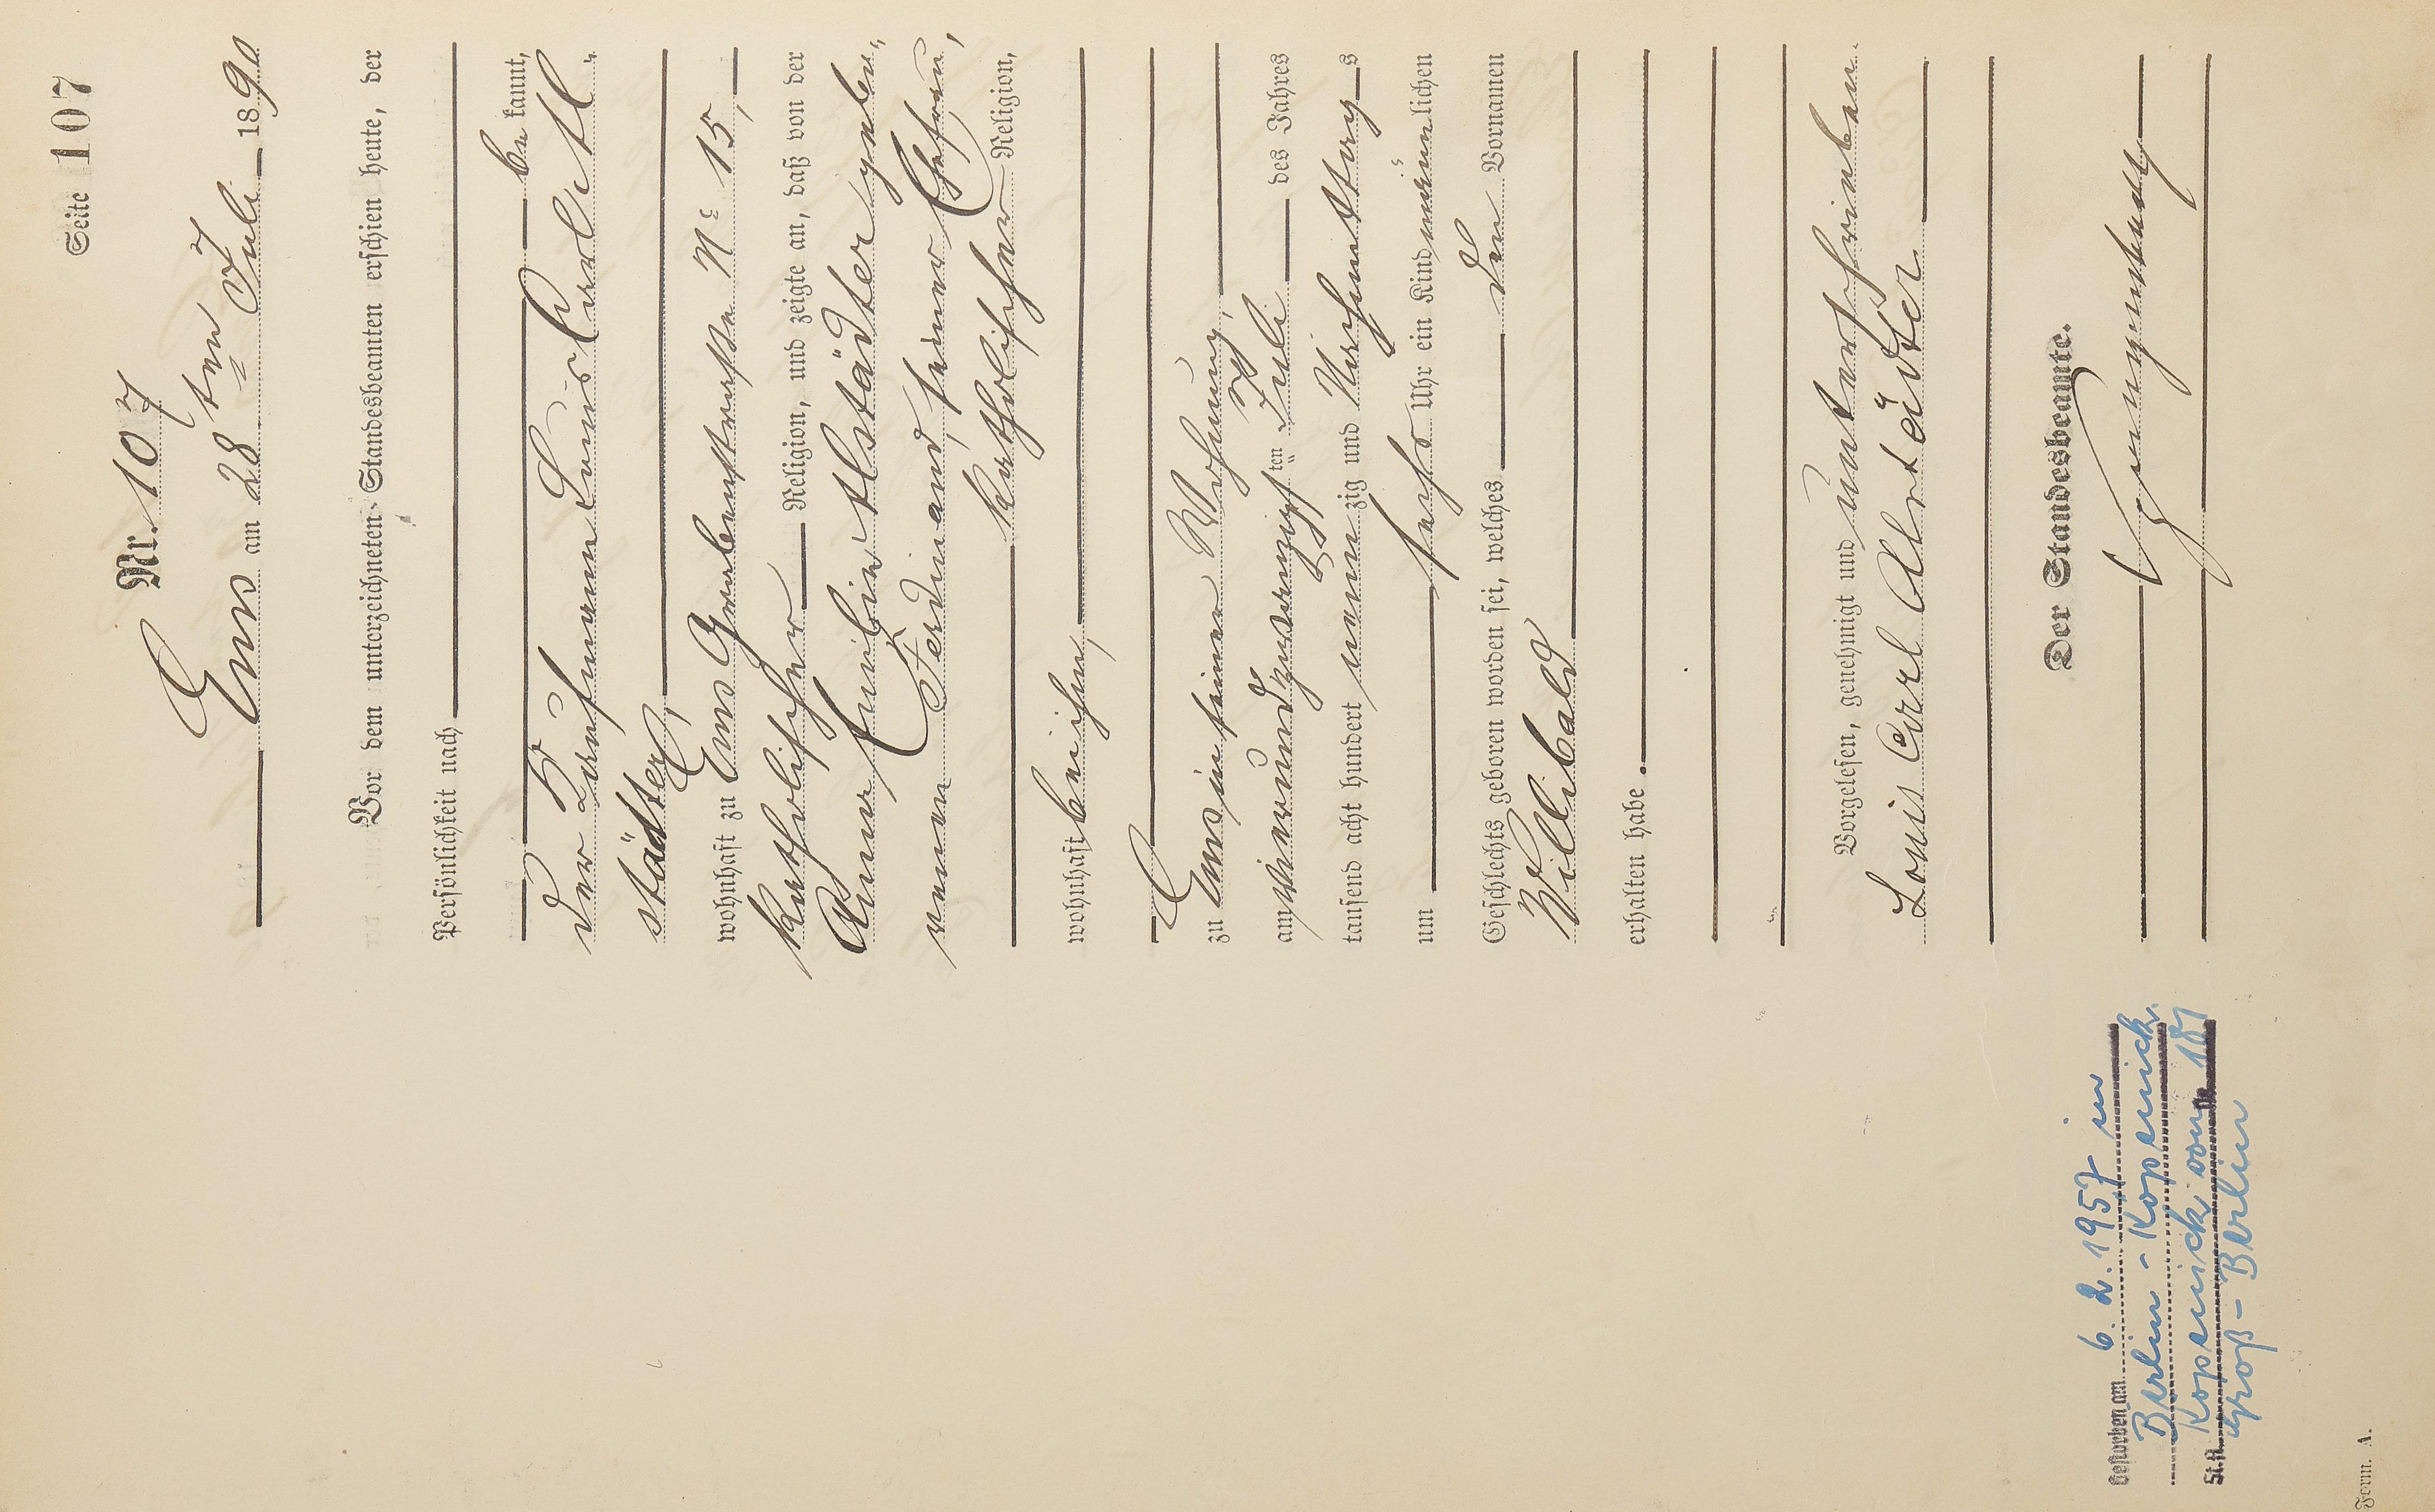 Seite 107
Nr. 107
Ems am 28ten Juli 1890
Vor dem unterzeichneten Standesbeamten erschien heute, der
Persönlichkeit nach
bekannt,
der Kaufmann Louis Carl Alt-
städter,
wohnhaft zu Ems Grabenstraße No 15,
katholischer Religion, und zeigte an, daß von der
Anna Emilie Altstädter gebo-
renen Ferdinand, seiner Ehefrau,
katholischer Religion,
wohnhaft bei ihm,
zu Ems in seiner Wohnung,
am vierundzwanzigsten Juli des Jahres
tausend acht hundert neunzig und Nachmittags
um sechs Uhr ein Kind männlichen
Geschlechts geboren worden sei, welches den Vornamen
Willibald
erhalten habe.
Vorgelesen, genehmigt und unterschrieben
Louis Carl Altstädter
Der Standesbeamte.
Gestorben am 6. 2. 1957 in
Berlin - Köpenick
St.A. Köpenick von Nr. 181
Groß-Berlin
Form. A.